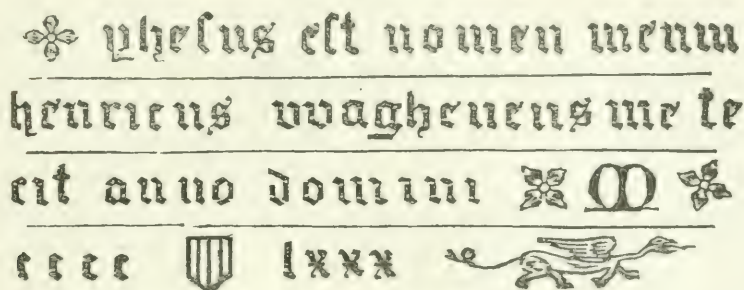 yhesus est nomen meum
henricus vvaghenens me fe
cit anno domini M
cccc lxxx